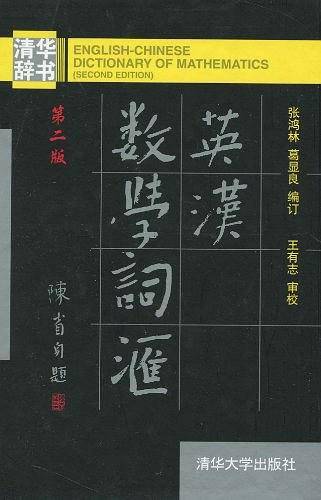 清华
辞书
ENGLISH-CHINESE
DICTIONARY OF MATHEMATICS
(SECOND EDITION)
英漢
數學詞滙
第二版
陳省身題
张鸿林 葛显良 编订
王有志 审校
清华大学出版社